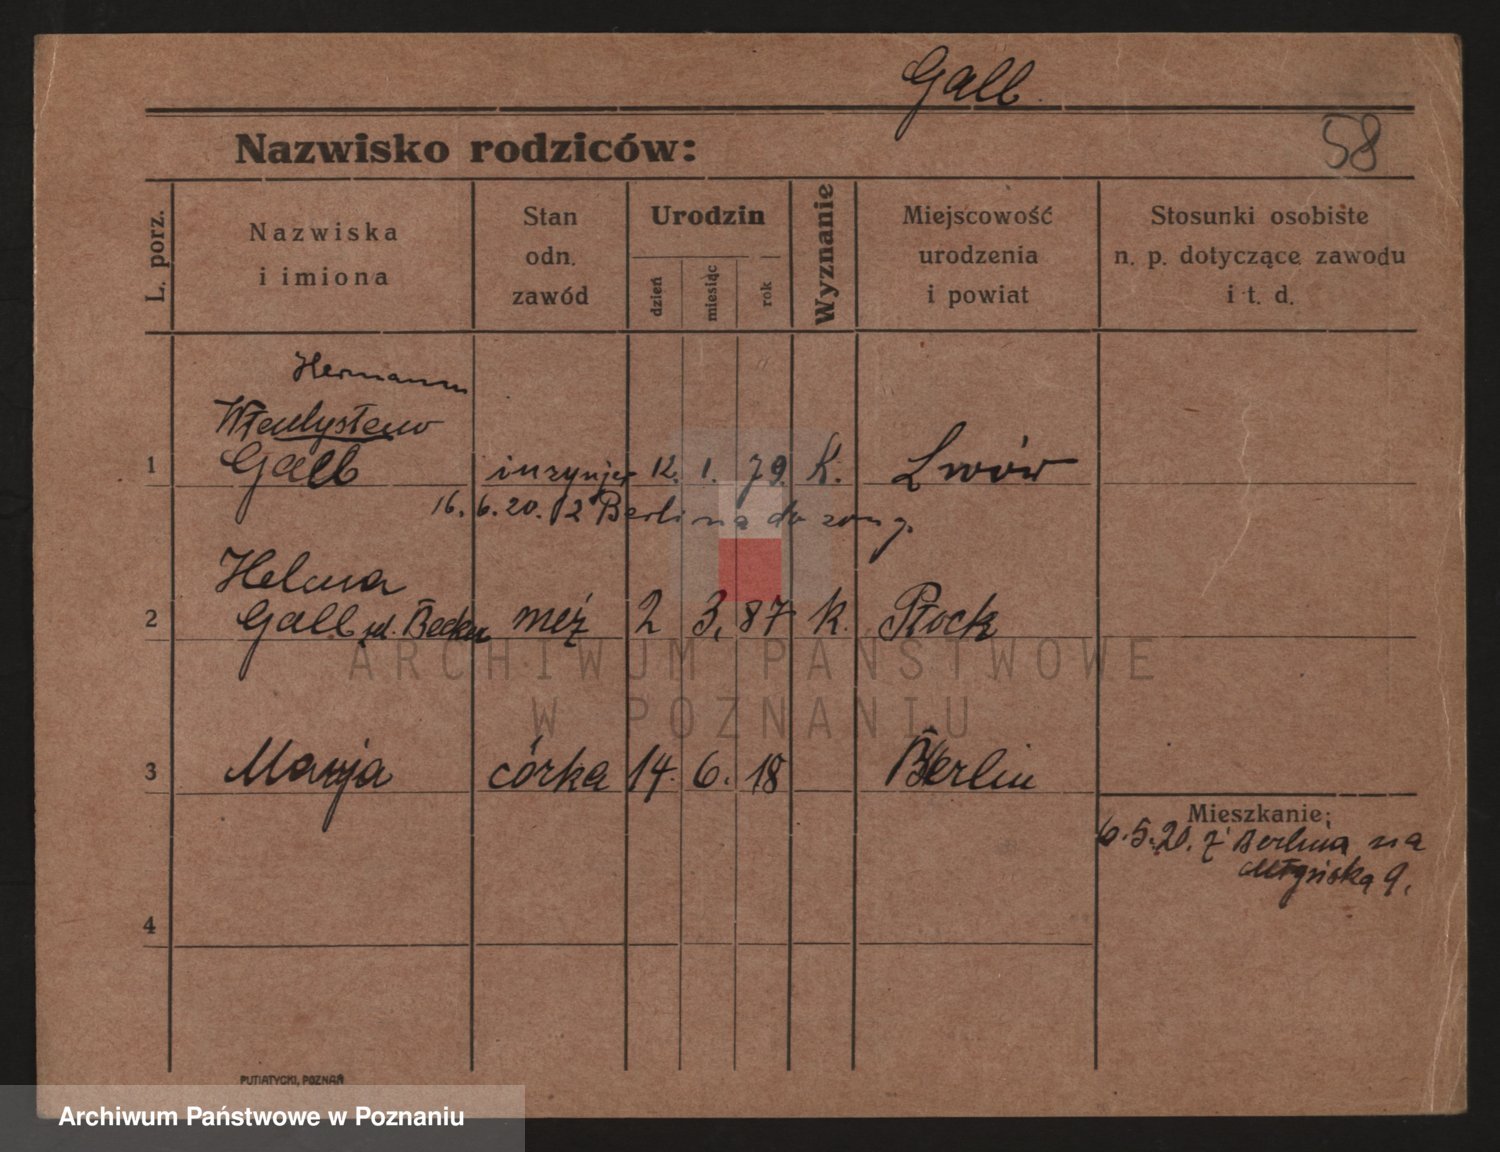 Gall.
Nazwisko rodziców:
58
L. porz.
Nazwiska
i imiona
Stan
odn.
zawód
Urodzin
dzień
miesiąc
rok
Wyznanie
Miejscowość
urodzenia
i powiat
Stosunki osobiste
n. p. dotyczące zawodu
i t. d.
Hermann
Władysław
1 Gall inżynjer 12. 1. 79. K. Lwów
16. 6. 20. z Berlina do żony.
Helena
2 Gall męż 2 3. 87 k. Płock
3 Marja córka 14. 6. 18 Berlin
Mieszkanie:
6.5.20. z Berlina na
Młyńską 9.
4
PUTIATYCKI, POZNAŃ
ARCHIWUM PAŃSTWOWE
W POZNANIU
Archiwum Państwowe w Poznaniu